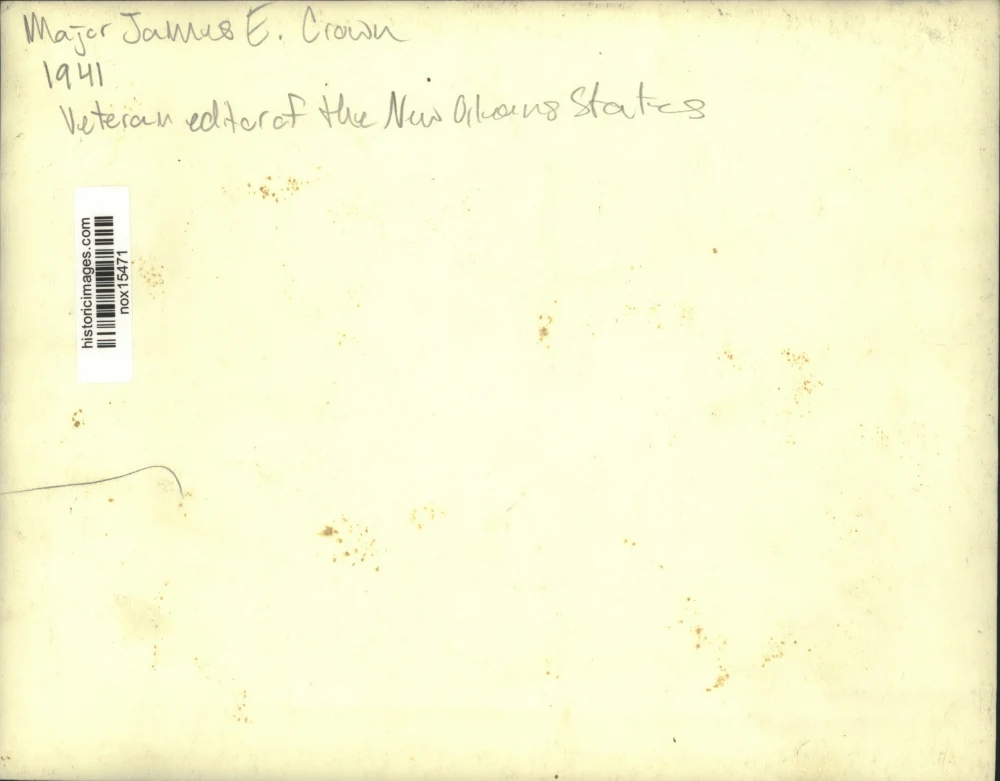 Major James E. Crown
1941
Veteran editor of the New Orleans States
historicimages.com
nox15471